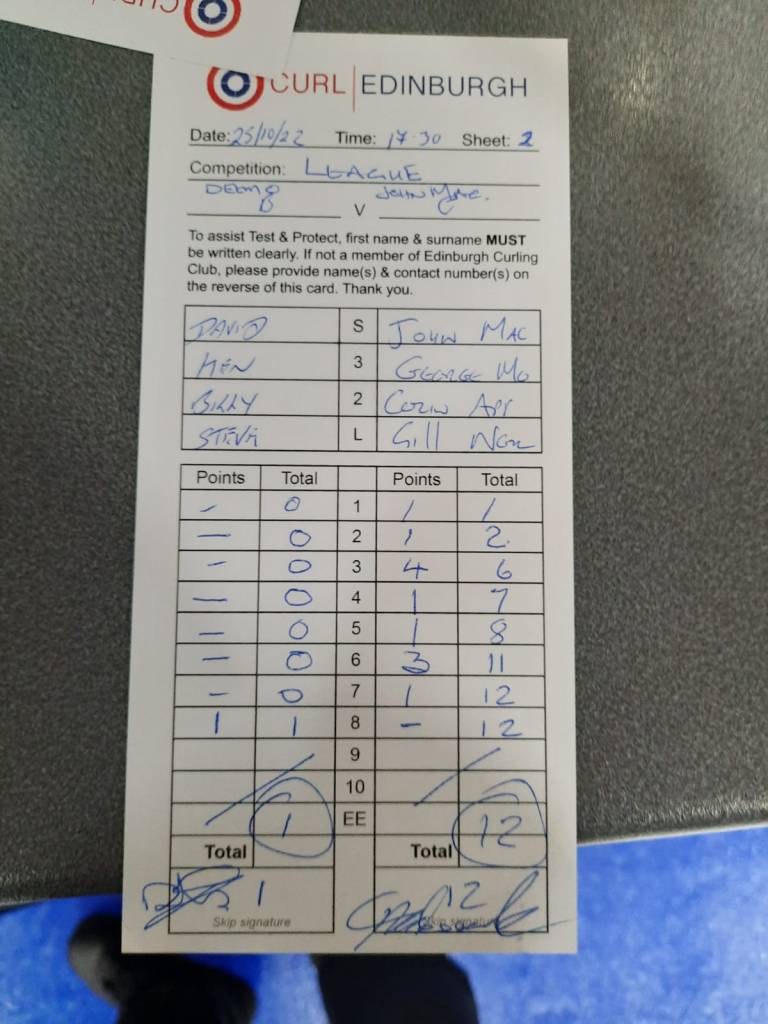 CURL EDINBURGH
Date: 25/10/22 Time: 17.30 Sheet: 2
Competition: LEAGUE
V JOHN Mac.
To assist Test & Protect, first name & surname MUST
be written clearly. If not a member of Edinburgh Curling
Club, please provide name(s) & contact number(s) on
the reverse of this card. Thank you.
DAVID S JOHN MAC
KEN 3 GEORGE Mc
BILLY 2 COLIN
STEVE L Gill
Points Total Points Total
- 0 1 1 1
- 0 2 1 2
- 0 3 4 6
- 0 4 1 7
- 0 5 1 8
- 0 6 3 11
- 0 7 1 12
1 1 8 - 12
9
10
1 EE 12
Total Total
1 12
Skip signature Skip signature